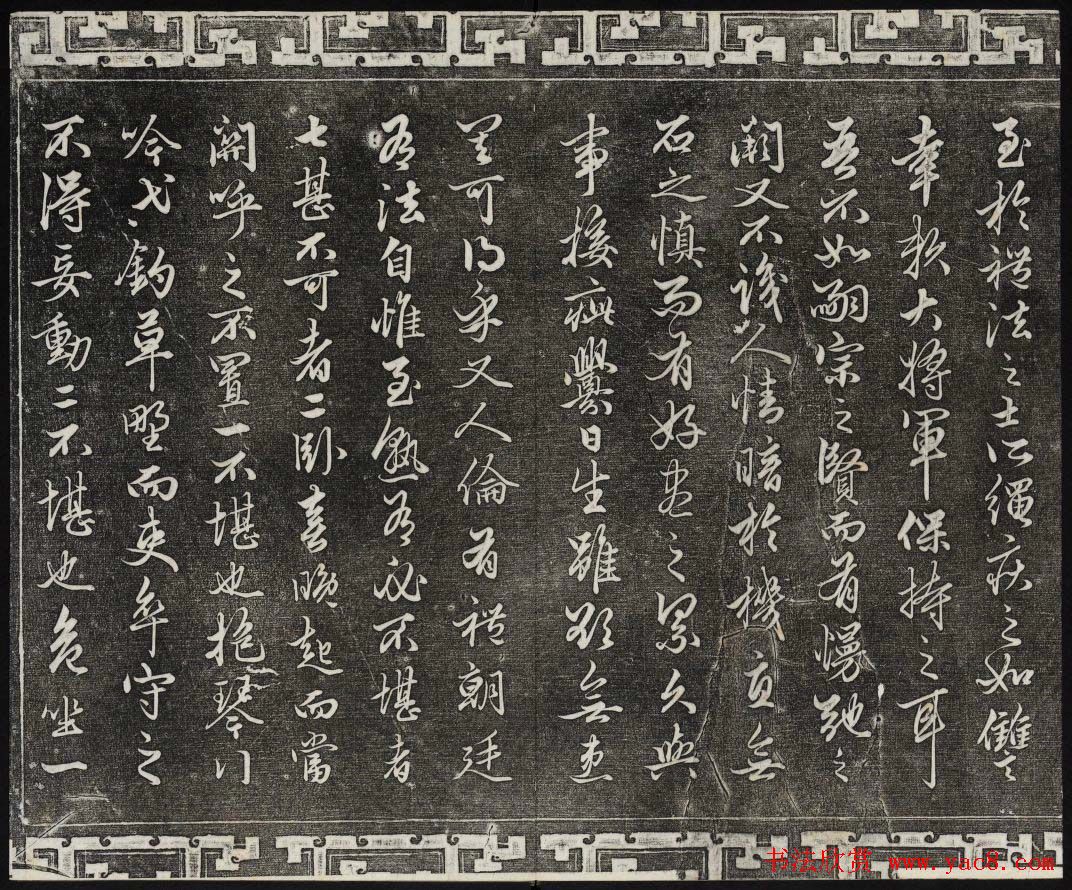 至於禮法之士所繩疾之如讎
幸賴大將軍保持之耳
吾不如嗣宗之賢而有慢弛之
闕又不識人情暗於機宜無
石之慎而有好盡之累久與
事接疵釁日生雖欲無患
其可得乎又人倫有禮朝廷
有法自惟至熟有必不堪者
七甚不可者二臥喜晚起而當
關呼之不置一不堪也抱琴行
吟弋釣草野而吏卒守之
不得妄動二不堪也危坐一
书法欣赏 www.yac8.com